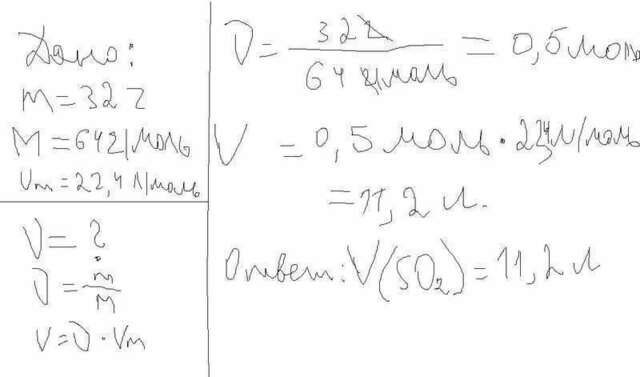 Дано:
m=32г
M=64г/моль
Vm=22,4л/моль
ν=?
ν=m/M
V=ν·Vm
ν=32г/64г/моль=0,5моль
V=0,5моль·22,4л/моль
=11,2л.
Ответ:V(SO₂)=11,2л